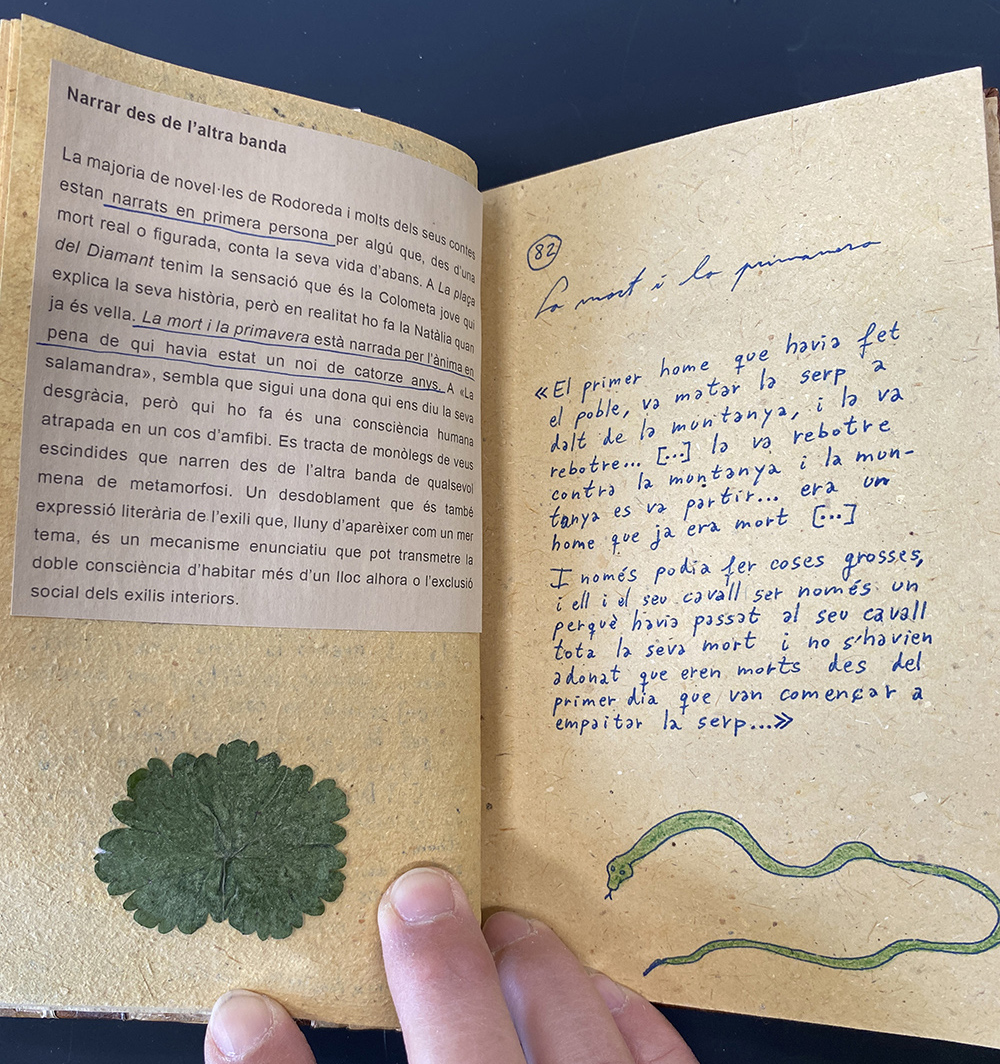 Narrar des de l'altra banda
La majoria de novel·les de Rodoreda i molts dels seus contes
estan narrats en primera persona per algú que, des d'una
mort real o figurada, conta la seva vida d'abans. A La plaça
del Diamant tenim la sensació que és la Colometa jove qui
explica la seva història, però en realitat ho fa la Natàlia quan
ja és vella. La mort i la primavera està narrada per l'ànima en
pena de qui havia estat un noi de catorze anys. A «La
salamandra», sembla que sigui una dona qui ens diu la seva
desgràcia, però qui ho fa és una consciència humana
atrapada en un cos d'amfibi. Es tracta de monòlegs de veus
escindides que narren des de l'altra banda de qualsevol
mena de metamorfosi. Un desdoblament que és també
expressió literària de l'exili que, lluny d'aparèixer com un mer
tema, és un mecanisme enunciatiu que pot transmetre la
doble consciència d'habitar més d'un lloc alhora o l'exclusió
social dels exilis interiors.
82
La mort i la primavera
«El primer home que havia fet
el poble, va matar la serp a
dalt de la muntanya, i la va
rebotre... [...] la va rebotre
contra la muntanya i la mun-
tanya es va partir... era un
home que ja era mort [...]
I només podia fer coses grosses,
i ell i el seu cavall ser només un
perquè havia passat al seu cavall
tota la seva mort i no s'havien
adonat que eren morts des del
primer dia que van començar a
empaitar la serp...»